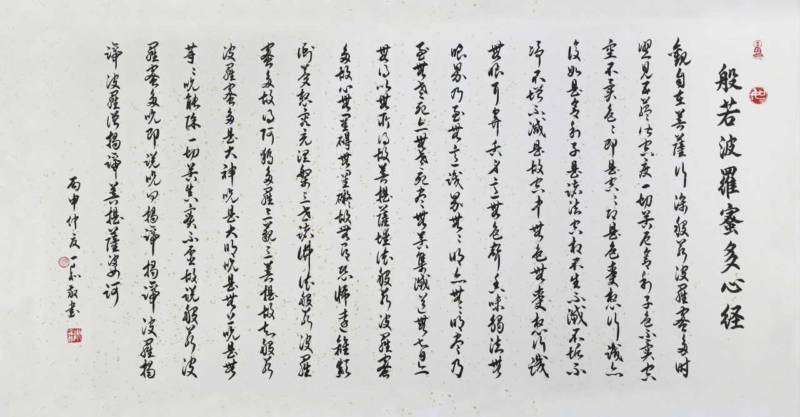 般若波羅蜜多心経
觀自在菩薩行深般若波羅蜜多時
照見五蘊皆空度一切苦厄舍利子色不異空
空不異色色々即是空々即是色受想行識亦
復如是舍利子是諸法空相不生不滅不垢不
淨不增不減是故空中無色無受想行識
無眼耳鼻舌身意無色聲香味觸法無
眼界乃至無意識界無々明亦無々明盡乃
至無老死亦無老死盡無苦集滅道無智亦
無得以無所得故菩提薩埵依般若波羅蜜
多故心無罣礙無罣礙故無有恐怖遠離顛
倒夢想究竟涅槃三世諸佛依般若波羅
蜜多故得阿耨多羅三藐三菩提故知般若
波羅蜜多是大神咒是大明咒是無上咒是無
等々咒能除一切苦真實不虛故說般若波
羅蜜多咒即說咒曰揭諦揭諦波羅揭
諦波羅僧揭諦菩提薩婆訶
丙申仲夏一敬書